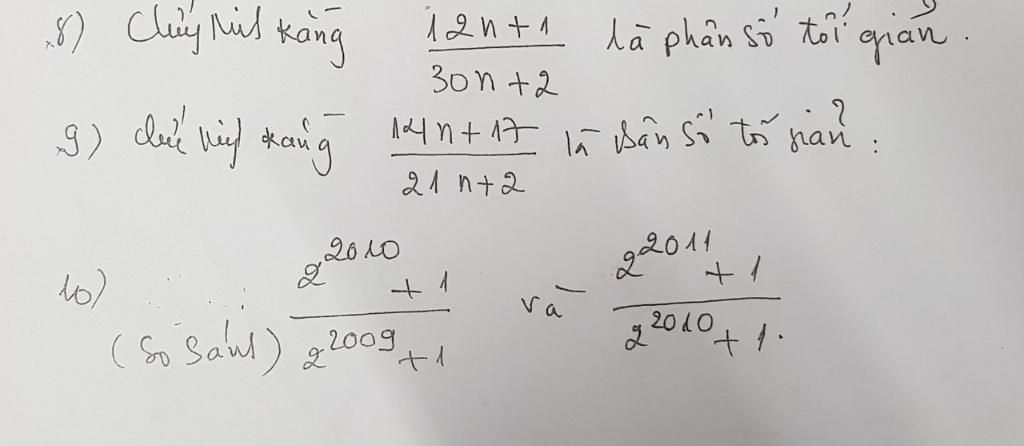 8) Chứng minh rằng \frac{12n+1}{30n+2} là phân số tối giản.
9) chứng minh rằng \frac{14n+17}{21n+2} là phân số tối giản.
10) (So sánh) \frac{2^{2010}+1}{2^{2009}+1} và \frac{2^{2011}+1}{2^{2010}+1}.